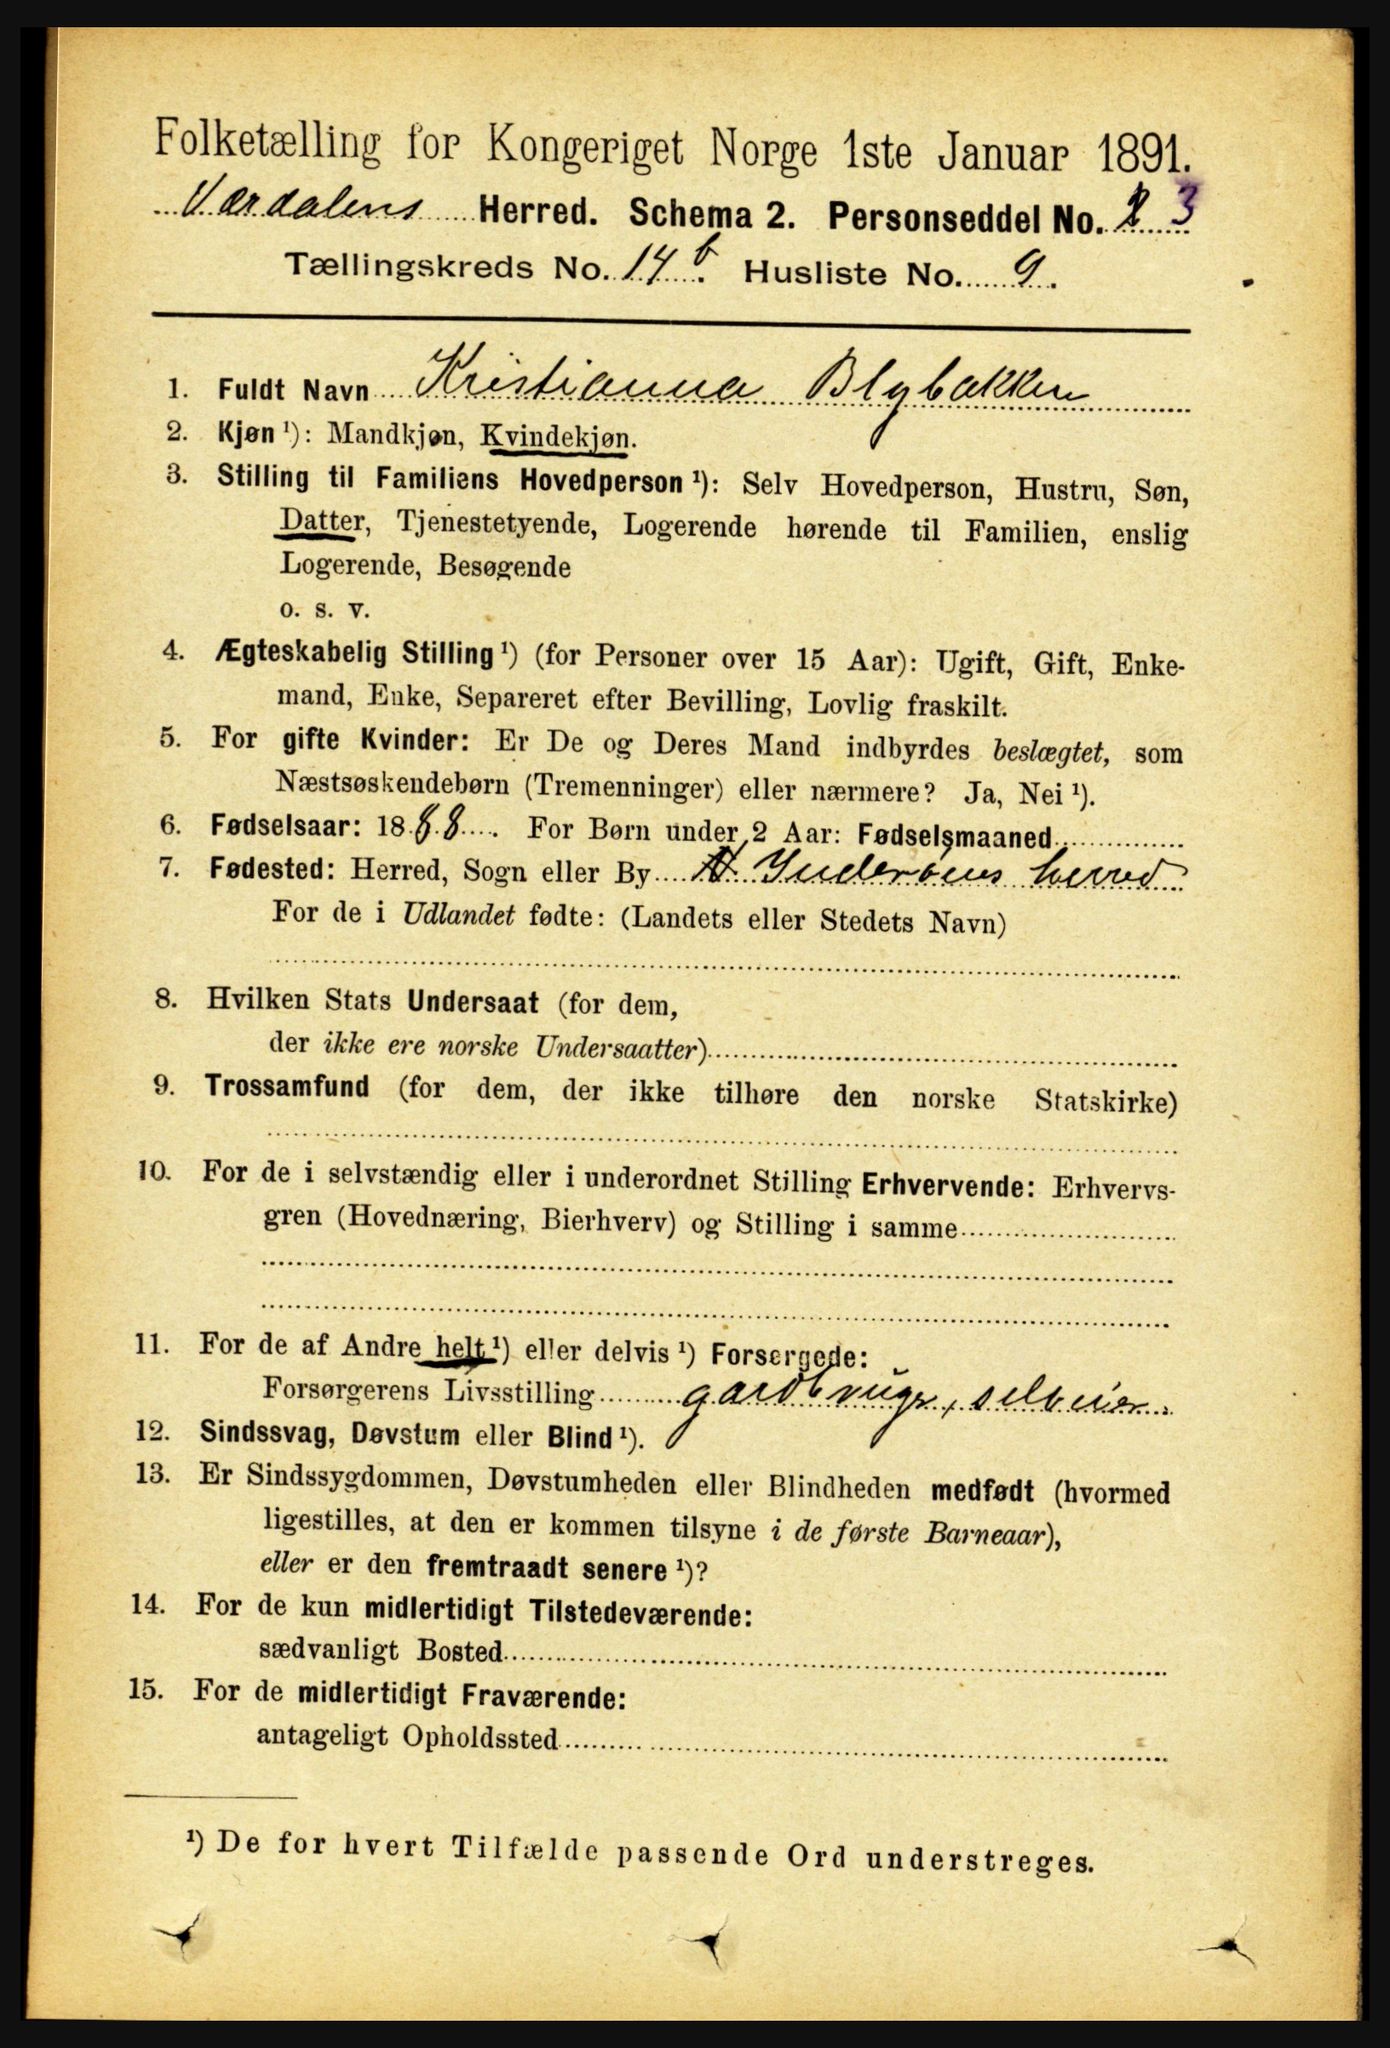 Folketælling for Kongeriget Norge 1ste Januar 1891.
Værdalens Herred. Schema 2. Personseddel No. 2 3
Tællingskreds No. 14 b. Husliste No. 9.
1. Fuldt Navn Kristianna Blybakken
2. Kjøn ¹): Mandkjøn, Kvindekjøn.
3. Stilling til Familiens Hovedperson ¹): Selv Hovedperson, Hustru, Søn,
Datter, Tjenestetyende, Logerende hørende til Familien, enslig
Logerende, Besøgende
o. s. v.
4. Ægteskabelig Stilling ¹) (for Personer over 15 Aar): Ugift, Gift, Enke-
mand, Enke, Separeret efter Bevilling, Lovlig fraskilt.
5. For gifte Kvinder: Er De og Deres Mand indbyrdes beslægtet, som
Næstsøskendebørn (Tremenninger) eller nærmere? Ja, Nei ¹).
6. Fødselsaar: 1888. For Børn under 2 Aar: Fødselsmaaned
7. Fødested: Herred, Sogn eller By Inderøens herred
For de i Udlandet fødte: (Landets eller Stedets Navn)
8. Hvilken Stats Undersaat (for dem,
der ikke ere norske Undersaatter)
9. Trossamfund (for dem, der ikke tilhøre den norske Statskirke)
10. For de i selvstændig eller i underordnet Stilling Erhvervende: Erhvervs-
gren (Hovednæring, Bierhverv) og Stilling i samme
11. For de af Andre helt ¹) eller delvis ¹) Forsørgede:
Forsørgerens Livsstilling gardbruger, selveier.
12. Sindssvag, Døvstum eller Blind ¹).
13. Er Sindssygdommen, Døvstumheden eller Blindheden medfødt (hvormed
ligestilles, at den er kommen tilsyne i de første Barneaar),
eller er den fremtraadt senere ¹)?
14. For de kun midlertidigt Tilstedeværende:
sædvanligt Bosted
15. For de midlertidigt Fraværende:
antageligt Opholdssted
¹) De for hvert Tilfælde passende Ord understreges.